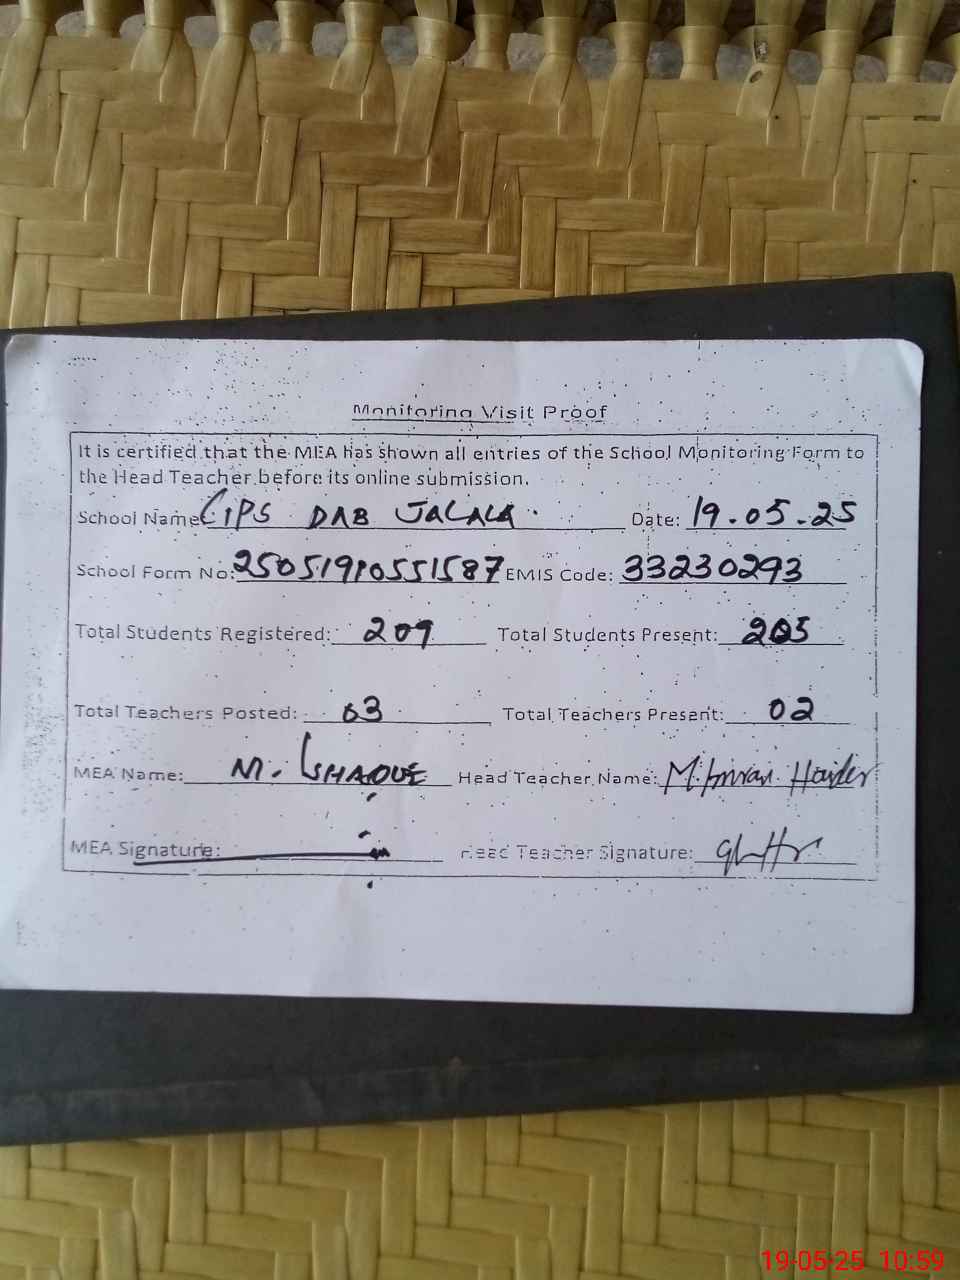 Monitoring Visit Proof
It is certified that the MEA has shown all entries of the School Monitoring Form to
the Head Teacher before its online submission.
School Name GPS DAB JALALA. Date: 19.05.25
School Form No: 25051910551587 EMIS Code: 33230293
Total Students Registered: 209 Total Students Present: 205
Total Teachers Posted: 03 Total Teachers Present: 02
MEA Name: M. ISHAQUE Head Teacher Name: M. Imran Haider
MEA Signature: Head Teacher Signature:
19-05-25 10:59